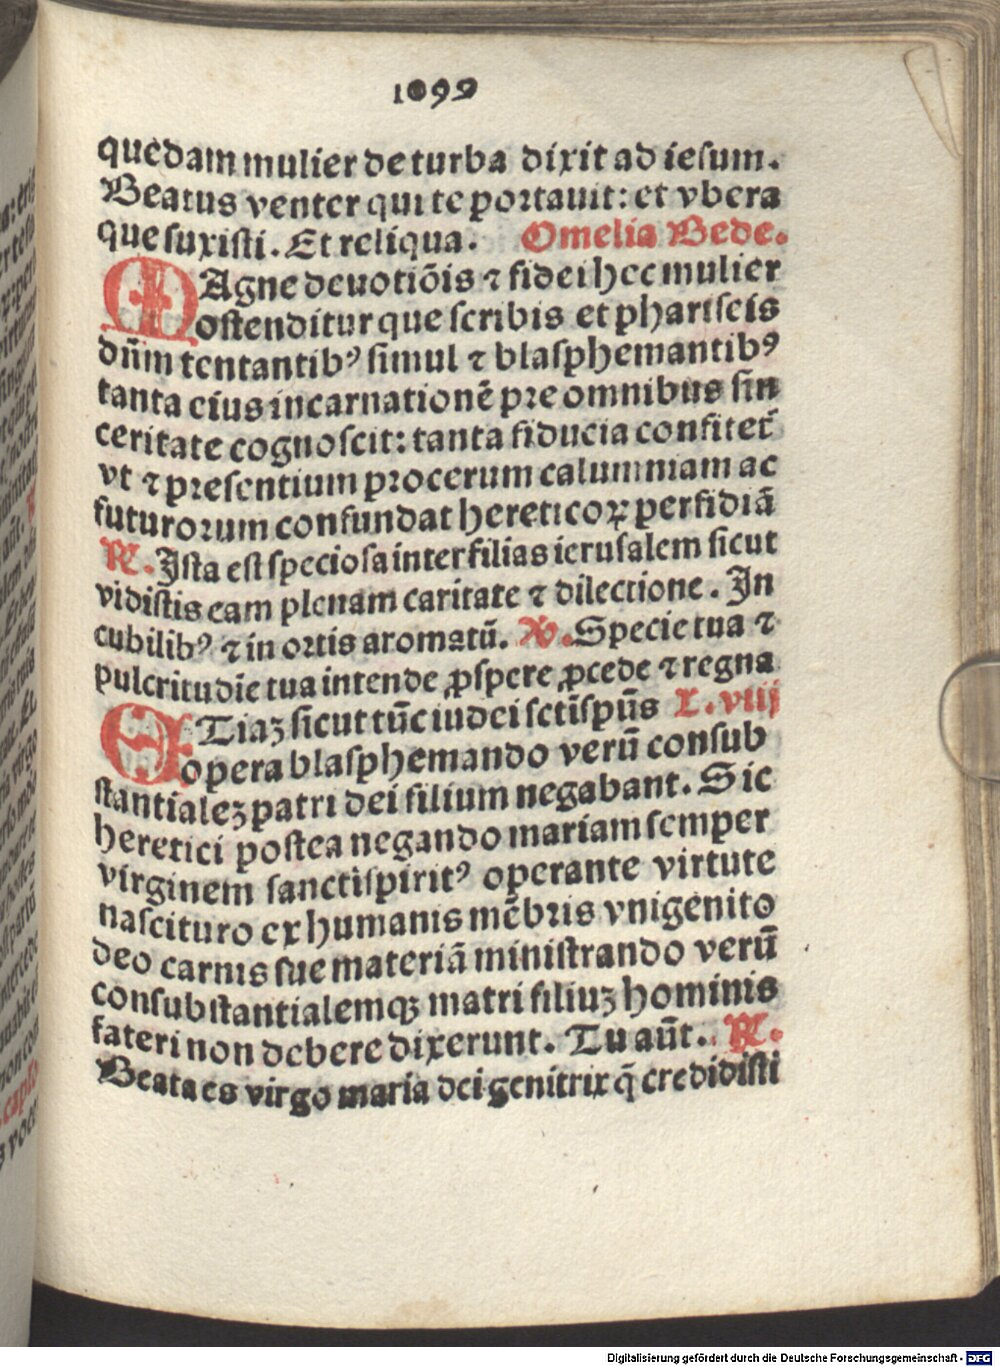 1099
quedam mulier de turba dixit ad iesum.
Beatus venter qui te portauit: et vbera
que suxisti. Et reliqua. Omelia Bede.
MAgne deuotiōis ⁊ fidei hec mulier
ostenditur que scribis et phariseis
dūm tentantibꝰ simul ⁊ blasphemantibꝰ
tanta eius incarnationē pre omnibus sin
ceritate cognoscit: tanta fiducia confitet̄
vt ⁊ presentium procerum calumniam ac
futurorum confundat hereticoꝝ perfidiā
℟. Ista est speciosa inter filias ierusalem sicut
vidistis eam plenam caritate ⁊ dilectione. In
cubilibꝰ ⁊ in ortis aromatū. ℣. Specie tua ⁊
pulcritudīe tua intende ꝓspere ꝓcede ⁊ regna
ETiaꝫ sicut tūc iudei sctīspūs L. viij
opera blasphemando verū consub
stantialeꝫ patri dei filium negabant. Sic
heretici postea negando mariam semper
virginem sanctispiritꝰ operante virtute
nascituro ex humanis mēbris vnigenito
deo carnis sue materiā ministrando verū
consubstantialemqꝫ matri filiuꝫ hominis
fateri non debere dixerunt. Tu aūt. ℟.
Beata es virgo maria dei genitrix q̄ credidisti
Digitalisierung gefördert durch die Deutsche Forschungsgemeinschaft - DFG